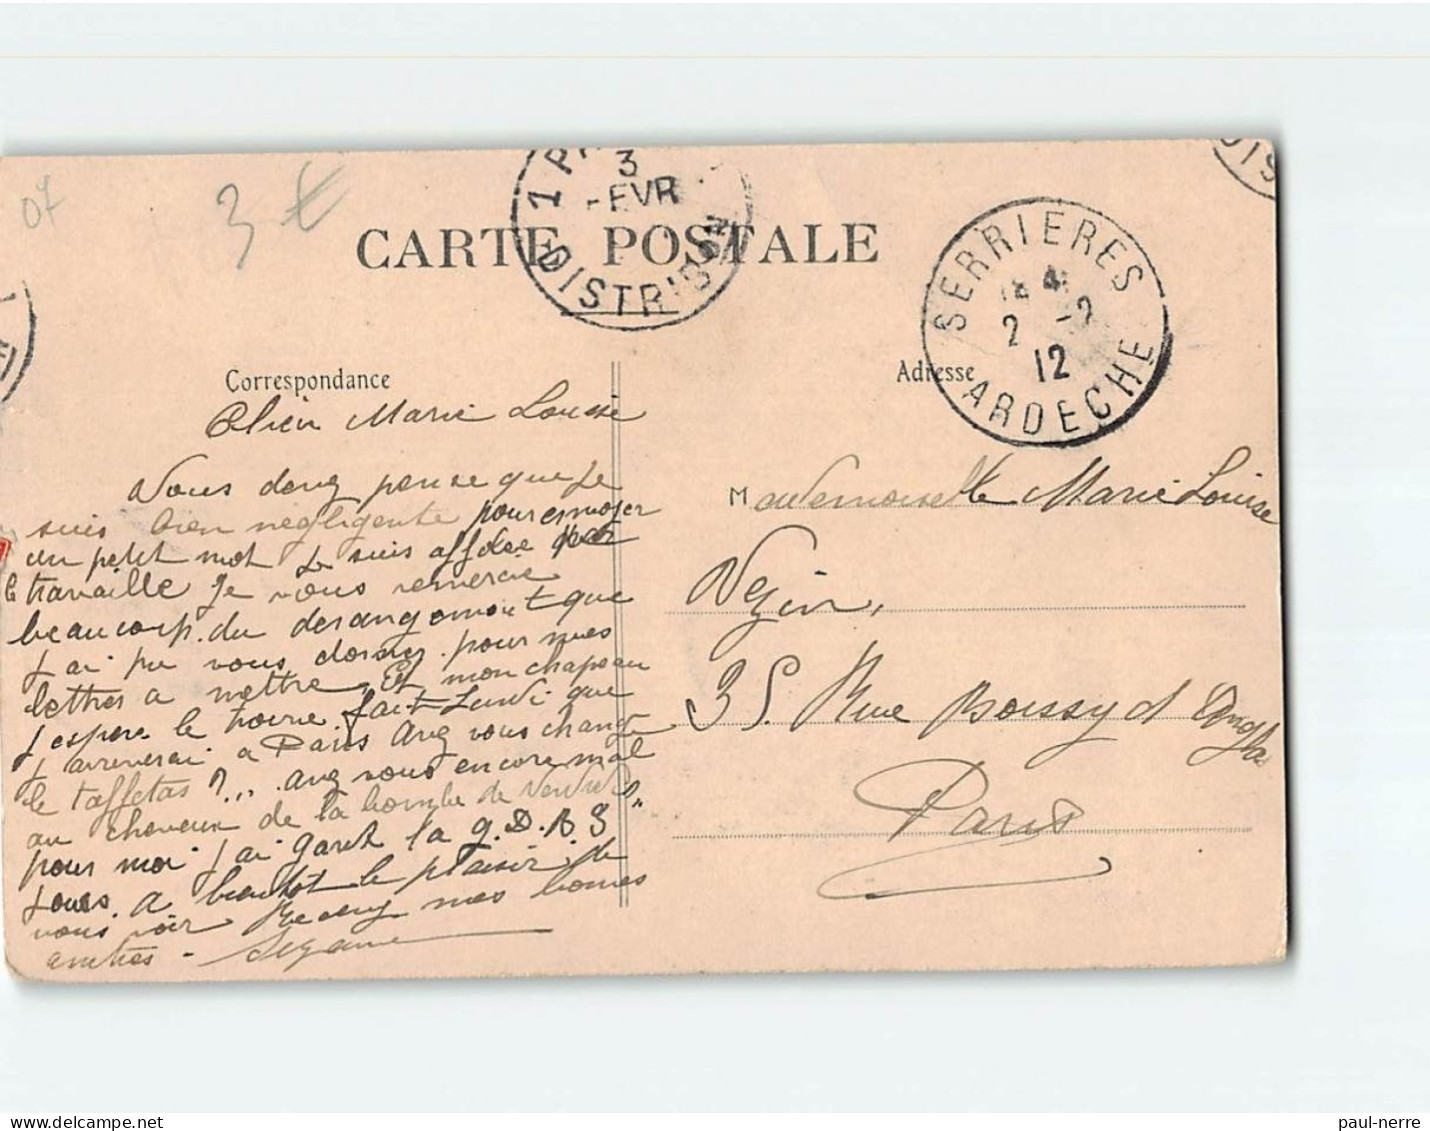 07
3 €
CARTE POSTALE
1 P
3
FEVR
DISTRIBON
DIS
SERRIERES
2 -2
12
ARDECHE
Correspondance
Adresse
Marie Louise
Vous devez pense que Je
suis bien négligente pour envoyer
un petit mot Je suis affolée par
le travaille Je vous remercie
beaucoup. du derangement que
J'ai pu vous donner pour mes
lettres a mettre. Et mon chapeau
J'espere le trouve fait Lundi que
J'arriverai a Paris Avez vous change
le taffetas ?... avez vous encore mal
au cheveux de la bombe de
pour moi J'ai garde la g. D. B 3
Jours. a bientot le plaisir de
vous voir Recevez mes bonnes
amities - Suzanne
Mademoiselle Marie Louise
Vezin,
35. Rue Boissy d'Anglas
Paris
paul-nerre